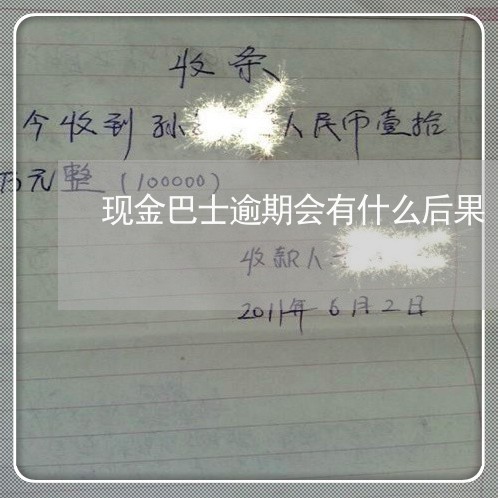 收条
今收到孙 人民币壹拾
万元整（100000）
现金巴士逾期会有什么后果
收款人
2011年6月2日